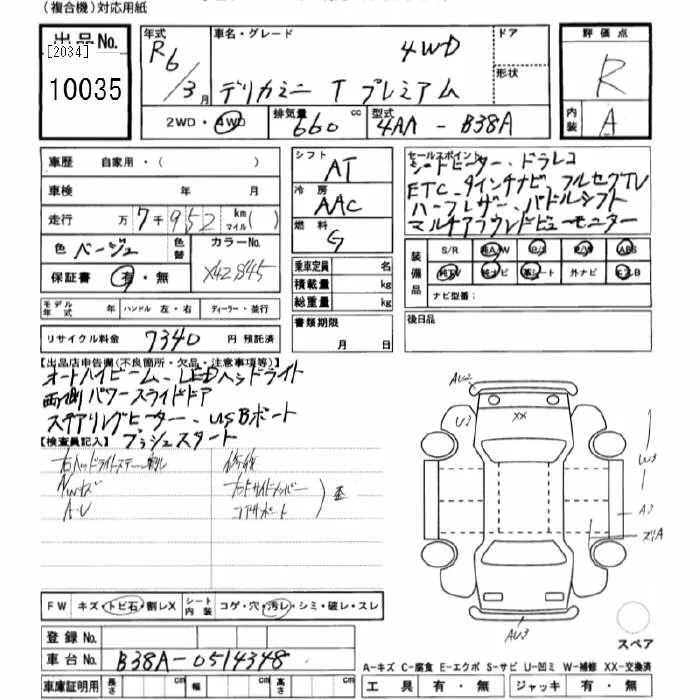 (複合機)対応用紙
出品No.
[2034]
10035
年式
R6/3月
車名・グレード
4WD
デリカミニ T プレミアム
ドア
形状
評価点
R
内装
A
2WD・4WD
排気量 660 cc
型式 4AA - B38A
車歴 自家用・( )
車検 年 月
走行 万 7千952 km マイル ( )
色 ベージュ
色替
カラーNo. X42845
保証書 有・無
モデル年式 年 ハンドル 左・右 ディーラー・並行
リサイクル料金 7340 円 預託済
シフト
AT
冷房
AAC
燃料
G
乗車定員 名
積載量 kg
総重量 kg
書類期限
月 日
セールスポイント
シートヒーター、ドラレコ
ETC 9インチナビ フルセグTV
ハーフレザー、パドルシフト
マルチアラウンドビューモニター
装備品
S/R 純A/W P/S P/W ABS
純TV 純ナビ 革シート 外ナビ エアB
ナビ型番:
後日品
【出品店申告欄(不良箇所・欠品・注意事項等)】
オートハイビーム、LEDヘッドライト
両側パワースライドドア
ステアリングヒーター、USBポート
【検査員記入】 プッシュスタート
右ヘッドライトステー
A・U
修復
コアサポート
FW キズ・トビ石・割レX
シート内装 コゲ・穴・汚レ・シミ・破レ・スレ
登録No.
車台No. B38A-0514348
車庫証明用 長さ cm 幅 cm 高さ cm
AU2
U2
XX
W3
A3
AU3
スペア
A-キズ C-腐食 E-エクボ S-サビ U-凹ミ W-補修 XX-交換済
工具 有・無 ジャッキ 有・無